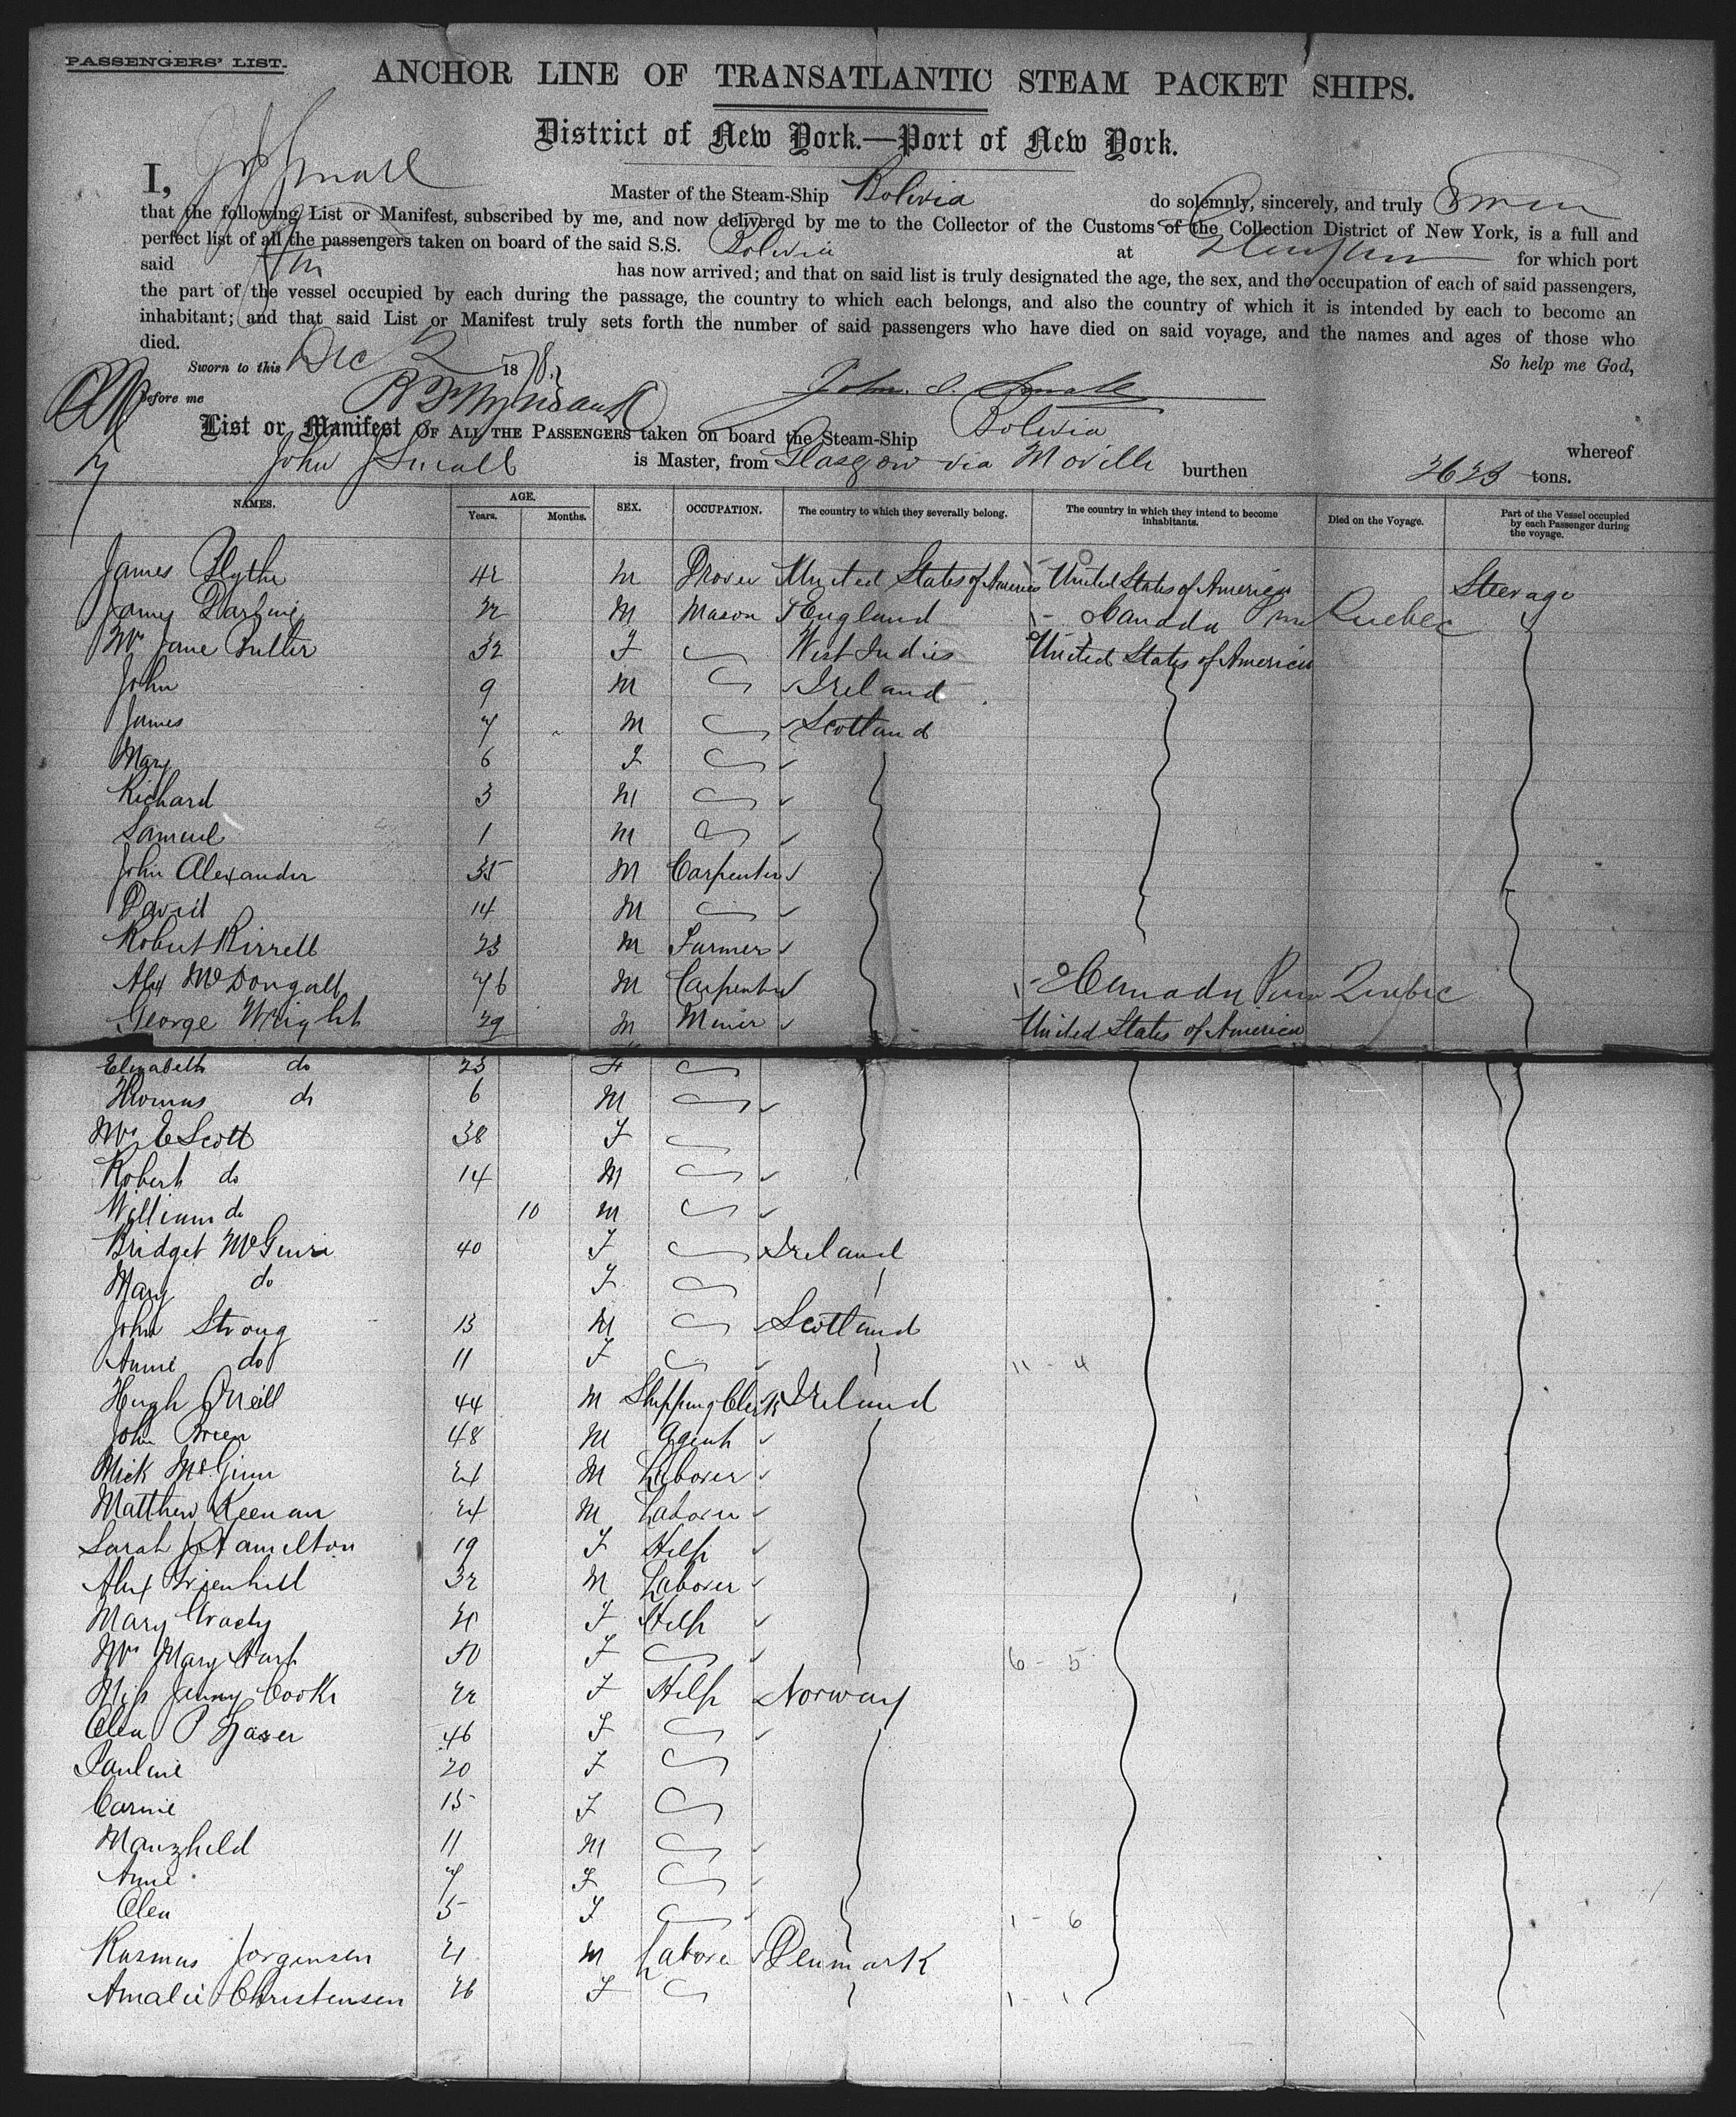 PASSENGERS' LIST.
ANCHOR LINE OF TRANSATLANTIC STEAM PACKET SHIPS.
District of New York.—Port of New York.
I, J Small Master of the Steam-Ship Bolivia do solemnly, sincerely, and truly Swear
that the following List or Manifest, subscribed by me, and now delivered by me to the Collector of the Customs of the Collection District of New York, is a full and
perfect list of all the passengers taken on board of the said S.S. Bolivia at for which port
said has now arrived; and that on said list is truly designated the age, the sex, and the occupation of each of said passengers,
the part of the vessel occupied by each during the passage, the country to which each belongs, and also the country of which it is intended by each to become an
inhabitant; and that said List or Manifest truly sets forth the number of said passengers who have died on said voyage, and the names and ages of those who
died.
So help me God,
Sworn to this Dec 2 1878
Before me John J. Small
List or Manifest OF ALL THE PASSENGERS taken on board the Steam-Ship Bolivia whereof
John J Small is Master, from Glasgow via Moville burthen 2623 tons.
NAMES. AGE. Years. Months. SEX. OCCUPATION. The country to which they severally belong. The country in which they intend to become inhabitants. Died on the Voyage. Part of the Vessel occupied by each Passenger during the voyage.
James Blythe 42 M Drover United States of America United States of America Steerage
James 32 M Mason England Canada Quebec
Mrs Jane Butler 32 F West Indies United States of America
John 9 M Ireland
James 7 M Scotland
Mary 6 F
Richard 3 M
Samuel 1 M
John Alexander 35 M Carpenter
David 14 M
Robert Kirrell 23 M Farmer
Alex McDougall 76 M Carpenter Canada Quebec
George Wright 29 M Miner United States of America
Elizabeth do 23 F
Thomas do 6 M
Mrs E Scott 38 F
Robert do 14 M
William do 10 M
Bridget McGuire 40 F Ireland
Mary do F
John Strong 13 M Scotland
Annie do 11 F 11 - 4
Hugh O'Neill 44 M Shipping Clerk Ireland
John Breen 48 M Agent
Mick McGinn 21 M Laborer
Matthew Keenan 24 M Laborer
Sarah J Hamilton 19 F Help
Alex Greenhill 32 M Laborer
Mary Grady 20 F Help
Mrs Mary Hart 50 F 6 - 5
Miss Jenny Cooke 22 F Help Norway
Olea P 46 F
Pauline 20 F
Carine 15 F
Manzheld 11 M
Anne 7 F
Olea 5 F 1 - 6
Rasmus Jorgensen 21 M Laborer Denmark
Amalie Christensen 26 F 1 - 1